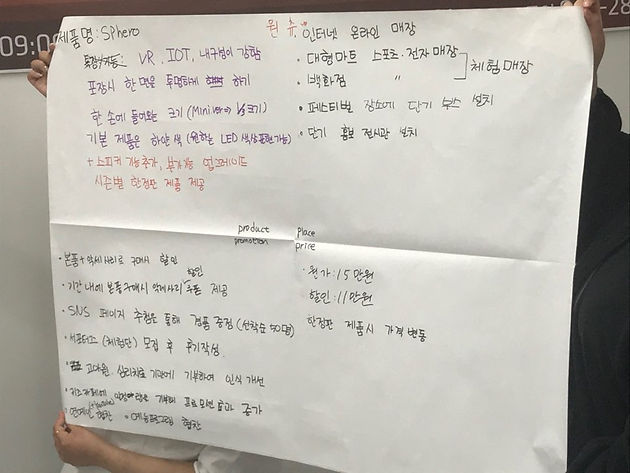 09:00
-28
제품명 : Sphero
VR, IOT, 내구성이 강함
포장시 한 면은 투명하게 하기
한 손에 들어오는 크기 (Mini ver
기본 제품은 하얀 색 (원하는 LED 색상 표현 가능)
+ 스피커 기능 추가, 부가기능 업그레이드
시즌별 한정판 제품 제공
인터넷 온라인 매장
• 대형마트 스포츠·전자매장
체험매장
• 백화점 〃
• 페스티벌 장소에 단기 부스 설치
• 단기 홍보 전시관 설치
product
place
promotion
price
• 본품 + 악세사리로 구매시 할인
• 기간 내에 본품 구매시 악세사리 할인 쿠폰 제공
• SNS 페이지 추첨을 통해 경품 증정 (선착순 50명)
• 서포터즈 (체험단) 모집 후 후기작성.
고아원, 심리치료 기관에 기부하여 인식 개선
키즈카페에 기부해 프로모션 효과 증가
• 연예인 협찬 • 예능프로그램 협찬
• 원가 : 15만원
할인 : 11만원
한정판 제품시 가격 변동